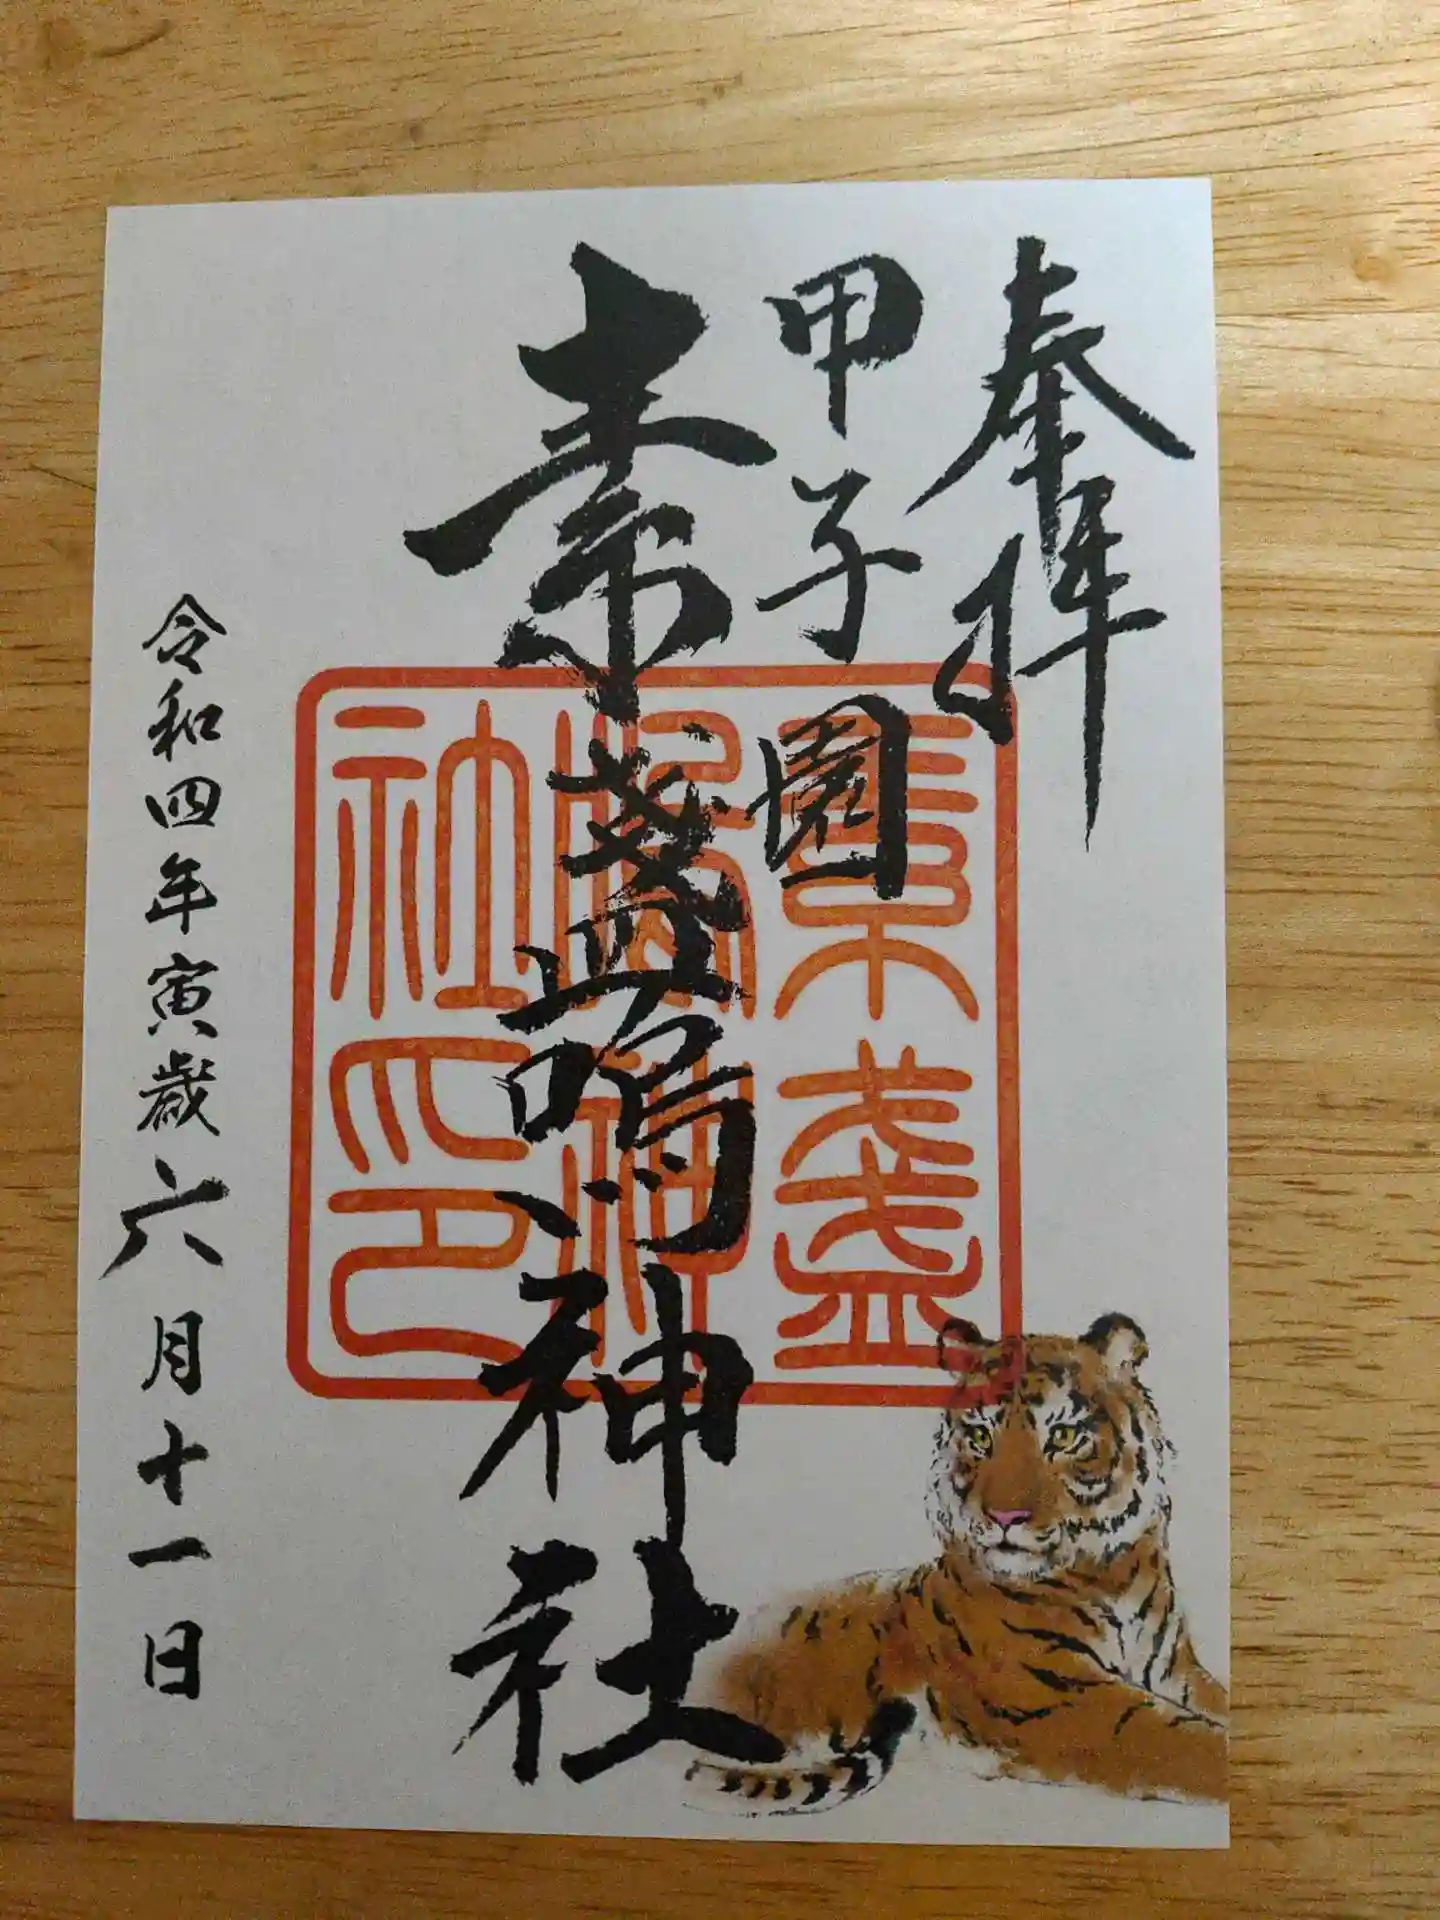 奉拝
甲子園
素盞嗚神社
素盞
嗚神
社印
令和四年寅歳六月十一日